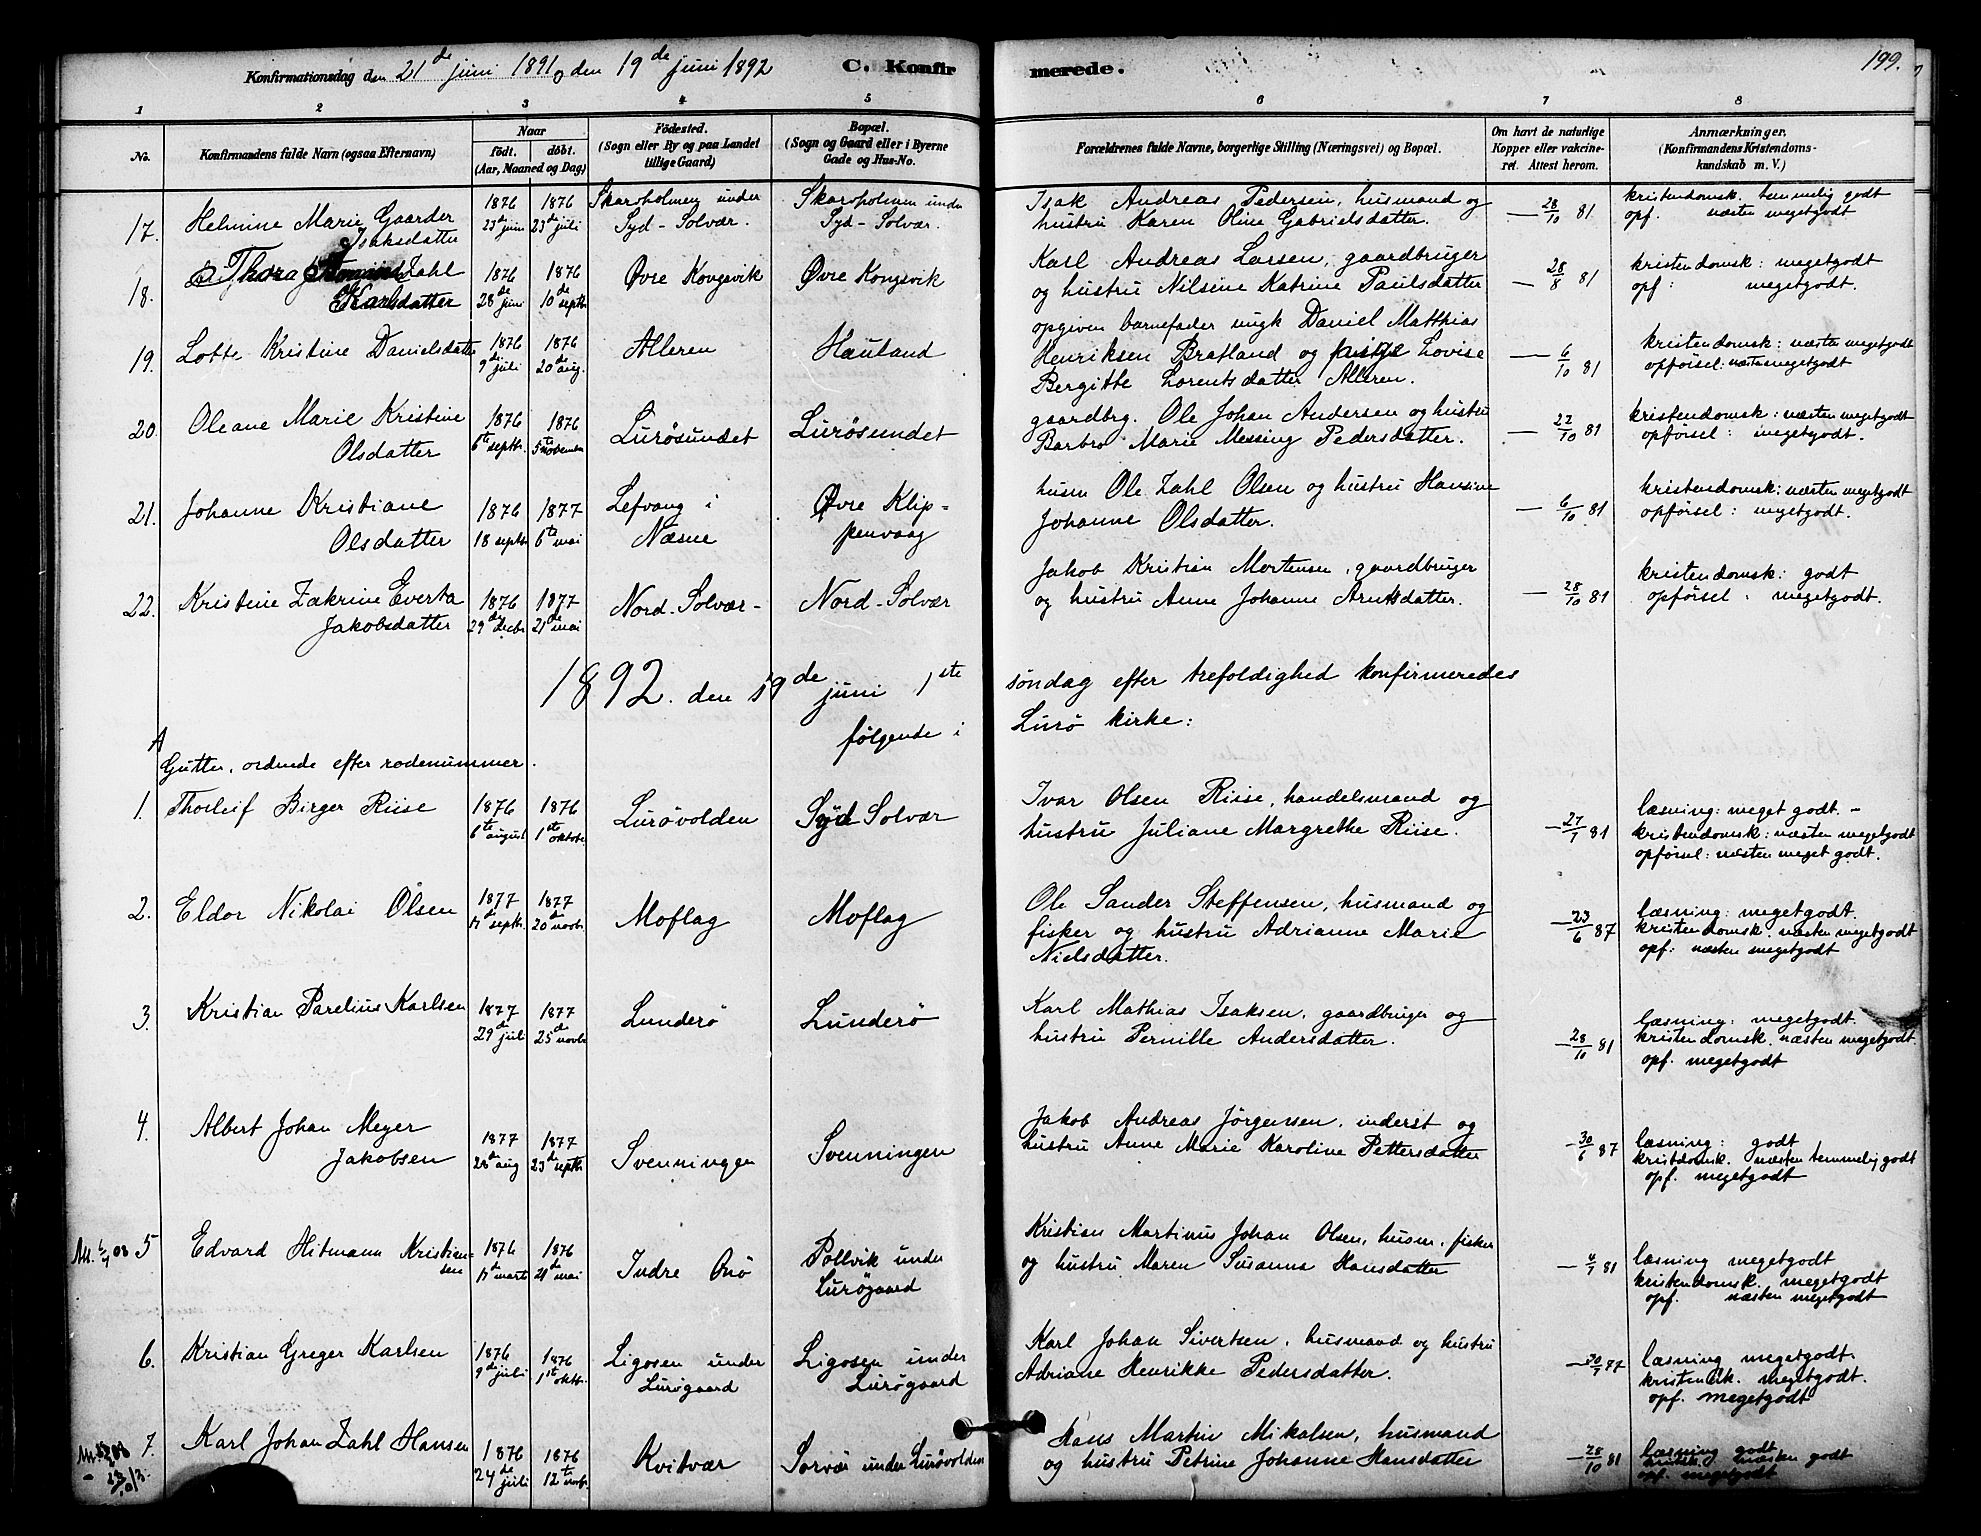 Konfirmationsdag den 21de juni 1891 og den 19de juni 1892 C. Konfirmerede. 199.
1 2 3 4 5 6 7 8
No. Konfirmandens fulde Navn (ogsaa Efternavn) Naar født. døbt. (Aar, Maaned og Dag) Födested. (Sogn eller By og paa Landet tillige Gaard) Bopæl. (Sogn og Gaard eller i Byerne Gade og Hus-No. Forældrenes fulde Navne, borgerlige Stilling (Næringsvei) og Bopæl. Om havt de naturlige Kopper eller vakcineret. Attest herom. Anmærkninger. (Konfirmandens Kristendomskundskab m. V.)
17. Helmine Marie Gaarder Isaksdatter 1876 23de juni 1876 23de juli Skarvholmen under Syd-Solvær. Skarvholmen under Syd-Solvær. Isak Andreas Pedersen, husmand og hustru Karen Oline Gabrielsdatter. — 28/10 81 kristendomsk. temmelig godt opf. næsten megetgodt
18. Thora Zahl Karlsdatter 1876 28de juni 1876 10de septbr Øvre Kongsvik Øvre Kongsvik Karl Andreas Larsen, gaardbruger og hustru Nilsine Katrine Paulsdatter — 28/8 81 kristendomsk: megetgodt opf: megetgodt.
19. Lotte Kristine Danielsdatter 1876 9de juli 1876 20de aug. Alleren Hauland opgiven barnefader ungk Daniel Matthias Henriksen Bratland og pige Lovise Bergitte Lorentsdatter Alleren. — 6/10 81 kristendomsk: næsten megetgodt opførsel: næsten megetgodt
20. Oleane Marie Kristine Olsdatter 1876 6te septbr. 1876 5te november Lurøsundet Lurøsundet gaardbrg. Ole Johan Andersen og hustru Barbro Marie Messing Pedersdatter. — 22/10 81 kristendomsk: næsten megetgodt opførsel: megetgodt.
21. Johanne Kristiane Olsdatter 1876 18 septbr 1877 6te mai Lefvang i Næsne Øvre Klippenvaag husm Ole Zahl Olsen og hustru Hansine Johanne Olsdatter. — 6/10 81 kristendomsk: næsten megetgodt opførsel: megetgodt.
22. Kristine Zakrine Everta Jakobsdatter 1876 29de decbr 1877 21de mai Nord-Solvær- Nord-Solvær Jakob Kristian Mortensen, gaardbruger og hustru Anne Johanne Arntsdatter. — 28/10 81 kristendomsk: godt opførsel: megetgodt.
1892. den 19de juni 1ste søndag efter trefoldighed konfirmeredes følgende i Lurø kirke:
A Gutter, ordnede efter rodenummer.
1. Thorleif Birger Riise 1876 6te august 1876 1ste oktober Lurøvolden Syd Solvær Ivar Olsen Riise, handelsmand og hustru Juliane Margrethe Riise. — 27/7 81 læsning: meget godt. - kristendomsk: næsten megetgodt opførsel: næsten meget godt.
2. Eldor Nikolai Olsen 1877 17de septbr. 1877 20de novbr. Moflag Moflag Ole Sander Steffensen, husmand og fisker og hustru Adrianne Marie Nielsdatter. — 23/6 87 læsning: megetgodt. kristendomsk. næsten megetgodt opf: næsten megetgodt
3. Kristian Parelius Karlsen 1877 29de juli 1877 25de novbr Lunderø Lunderø Karl Mathias Isaksen, gaardbruger og hustru Pernille Andersdatter. — 28/10 81 læsning: megetgodt. kristendomsk. næsten megetgodt. opf. megetgodt
4. Albert Johan Meyer Jakobsen 1877 28de aug 1877 23de septbr Svenningen Svenningen Jakob Andreas Jørgensen, inderst og hustru Anne Marie Karoline Pettersdatter — 30/6 87 læsning: godt kristdomsk. næsten temmelig godt opf. megetgodt
5 Edvard Hitmann Kristiansen 1876 17de marts 1876 21de mai Indre Onø Pollvik under Lurøgaard Kristian Martinus Johan Olsen, husm. fisker og hustru Maren Susanna Hansdatter — 4/7 81 læsning megetgodt kristendomsk. megetgodt opf. næsten megetgodt
6. Kristian Greger Karlsen 1876 9de juli 1876 1ste oktbr. Ligosen under Lurøgaard Ligosen under Lurøgaard Karl Johan Sivertsen, husmand og hustru Adriane Henrikke Pedersdatter. — 30/7 77 læsning megetgodt. kristendsk. megetgodt. opf. megetgodt
7. Karl Johan Zahl Hansen 1876 24de juli 1876 12te novbr. Kvitvær Sørvær under Lurøvolden Hans Martin Mikalsen, husmand og hustru Petrine Johanne Hansdatter — 28/10 81 læsning godt næsten godt opf. megetgodt